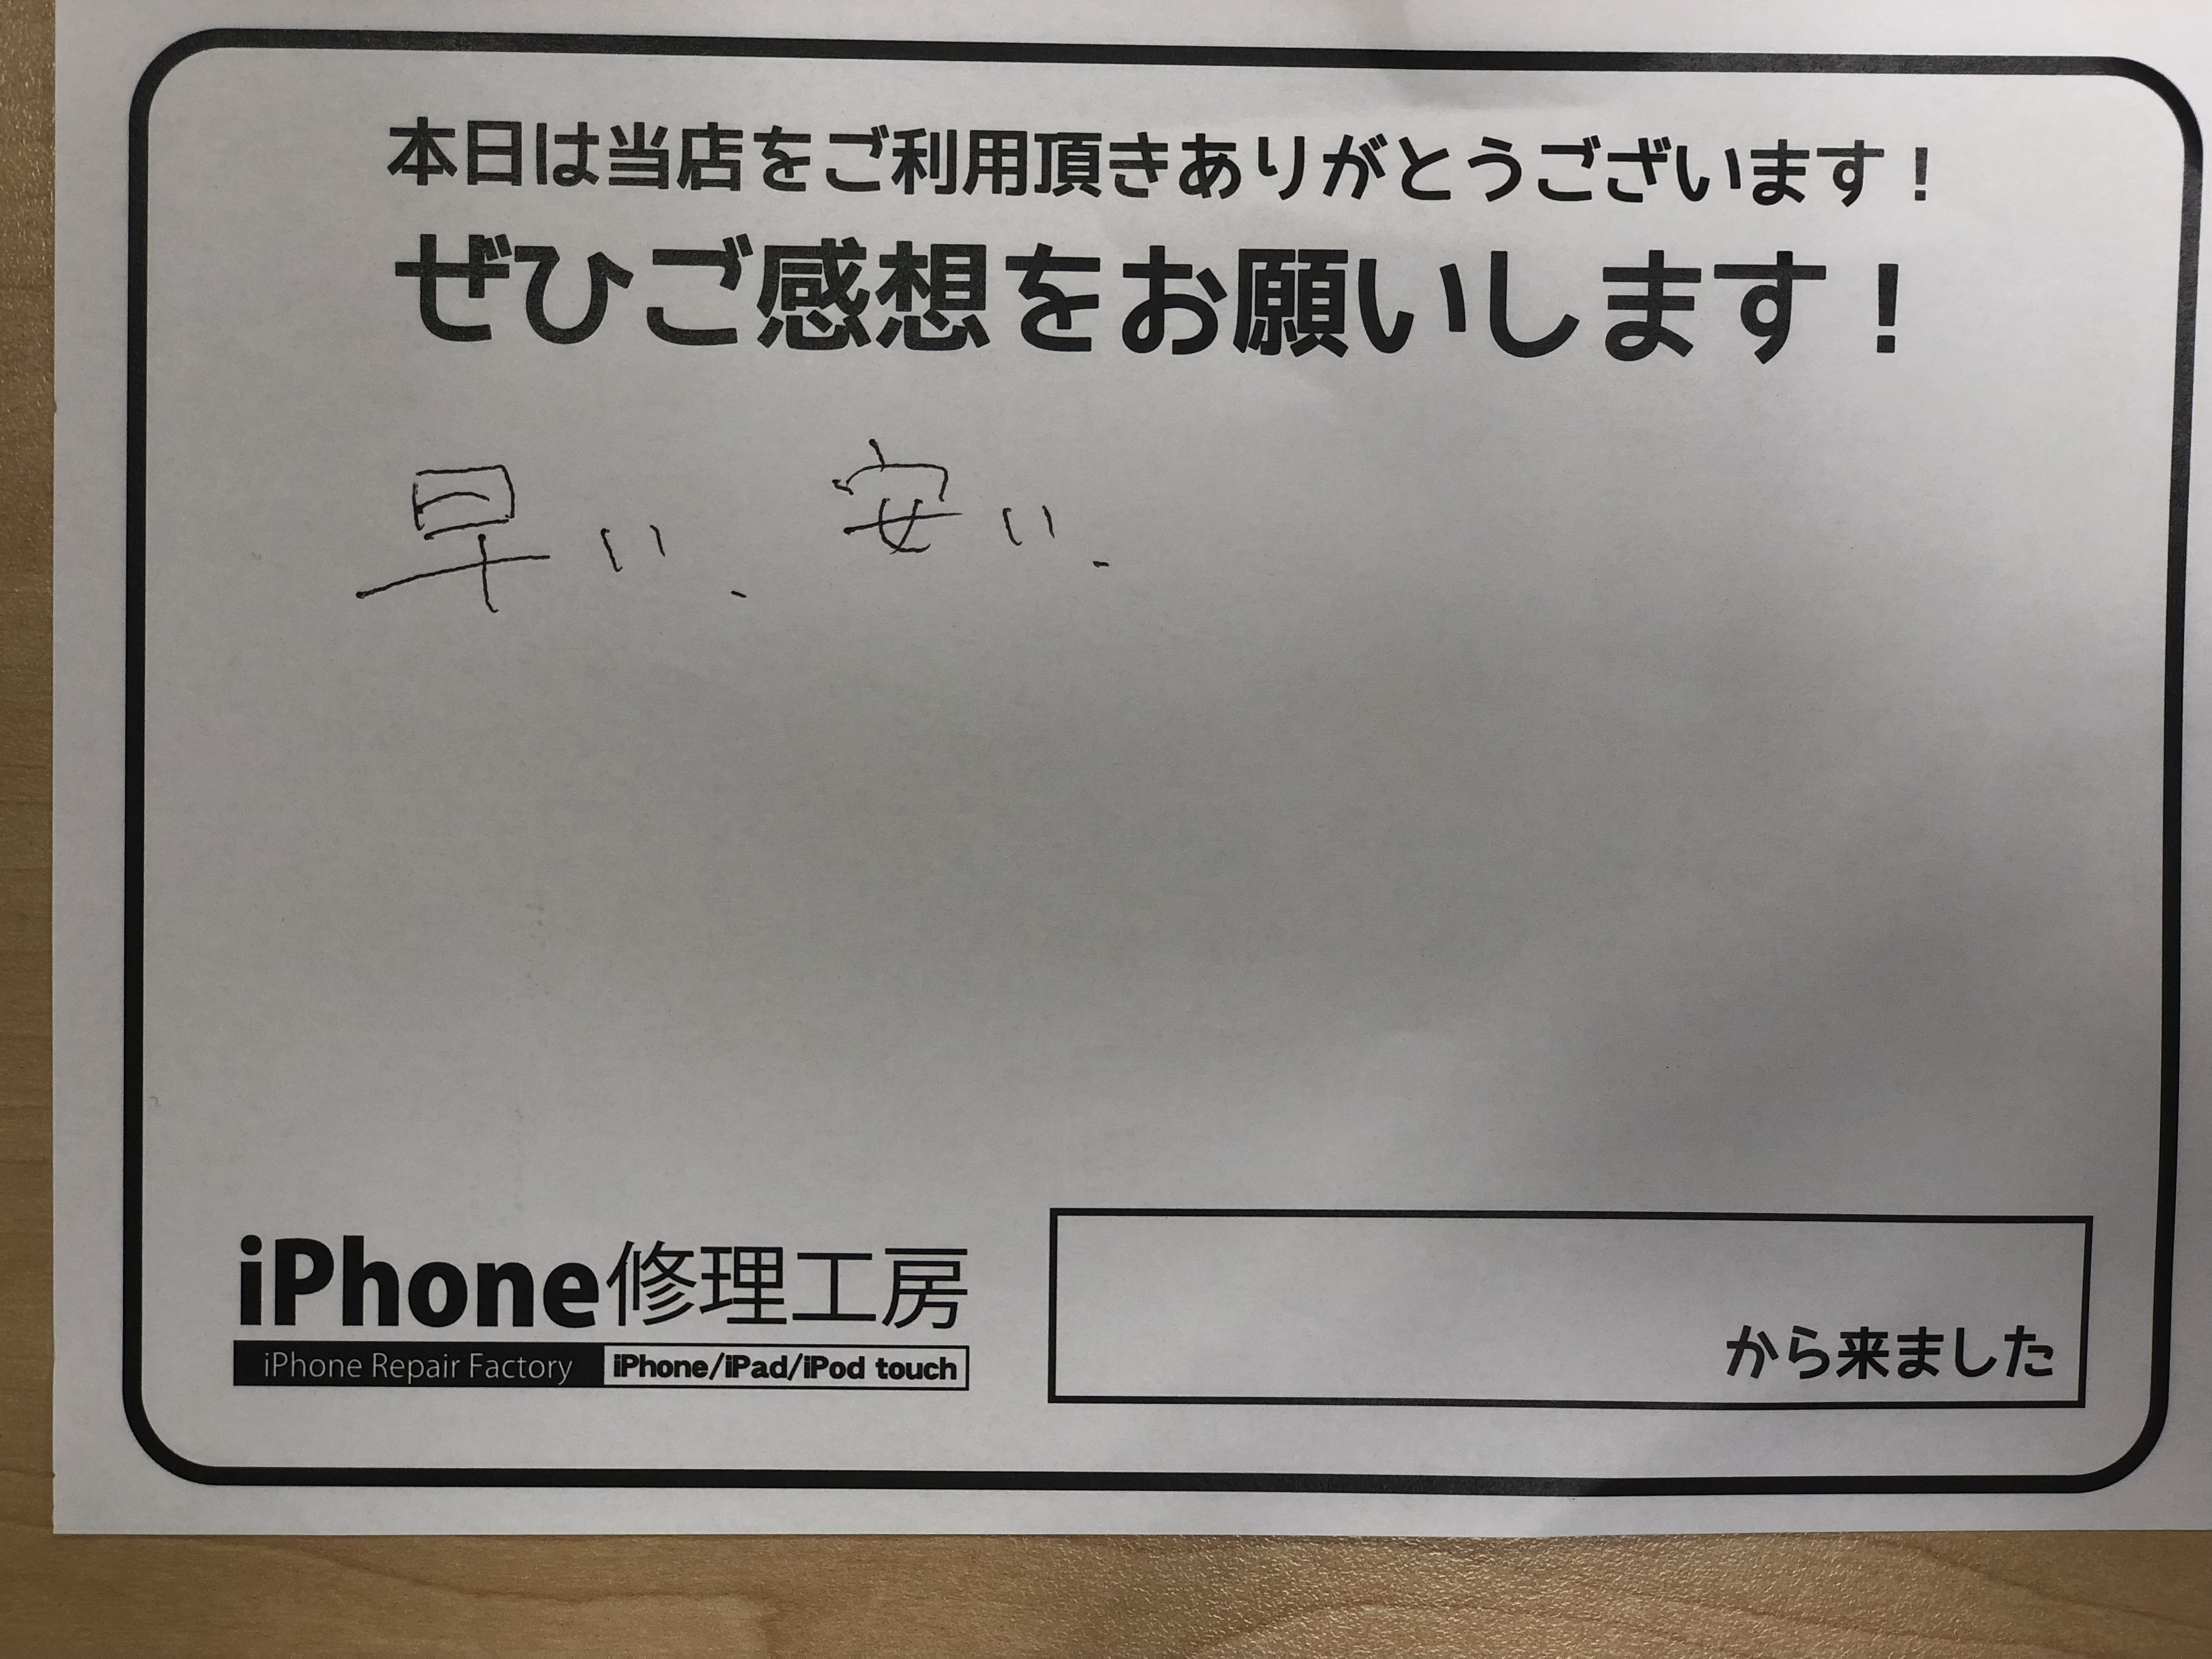 本日は当店をご利用頂きありがとうございます！
ぜひご感想をお願いします！
早い、安い、
iPhone修理工房
iPhone Repair Factory iPhone/iPad/iPod touch
から来ました